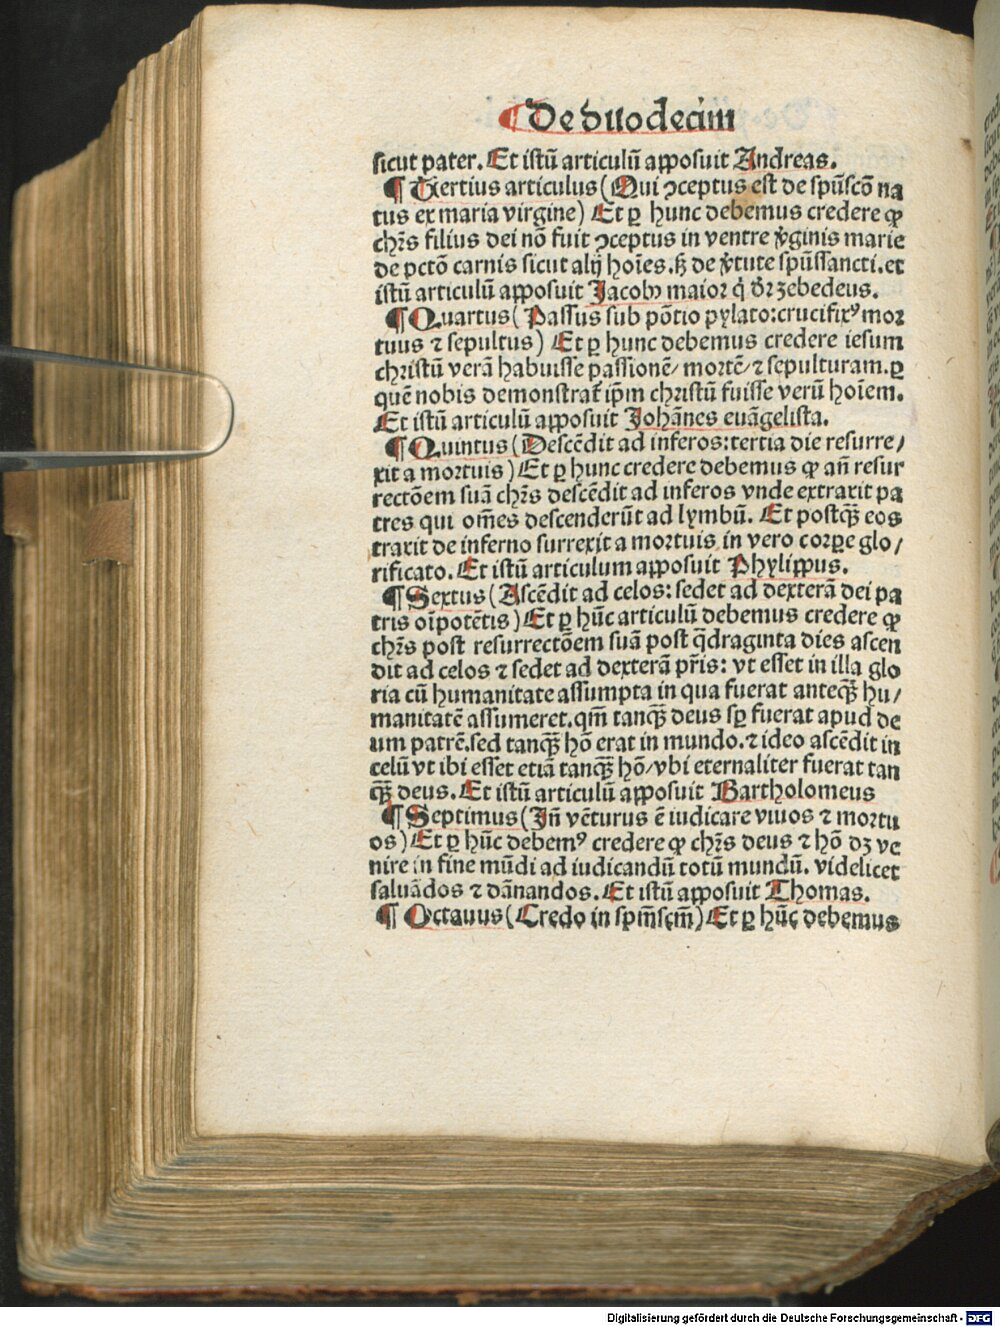 ¶ De duodecim
sicut pater. Et istū articulū apposuit Andreas.
¶ Tertius articulus (Qui ↄceptus est de spūscō na
tus ex maria virgine) Et ꝑ hunc debemus credere ꝙ
chr̄s filius dei nō fuit ↄceptus in ventre v̄ginis marie
de pctō carnis sicut alij hoīes. sꝫ de v̄tute spūssancti. et
istū articulū apposuit Jacobꝰ maior q̇ dr̄ zebedeus.
¶ Quartus (Passus sub pōtio pylato: crucifixꝰ mor
tuus ⁊ sepultus) Et ꝑ hunc debemus credere iesum
christū verā habuisse passionē/ mortē/ ⁊ sepulturam. ꝑ
quē nobis demonstrat̄ ip̄m christū fuisse verū hoīem.
Et istū articulū apposuit Johānes euāgelista.
¶ Quintus (Descēdit ad inferos: tertia die resurre/
xit a mortuis) Et ꝑ hunc credere debemus ꝙ an̄ resur
rectōem suā chr̄s descēdit ad inferos vnde extraxit pa
tres qui om̄es descenderūt ad lymbū. Et postqꝫ̄ eos
traxit de inferno surrexit a mortuis in vero corꝑe glo/
rificato. Et istū articulum apposuit Phylippus.
¶ Sextus (Ascēdit ad celos: sedet ad dexterā dei pa
tris oīpotētis) Et ꝑ hūc articulū debemus credere ꝙ
chr̄s post resurrectōem suā post q̄draginta dies ascen
dit ad celos ⁊ sedet ad dexterā pr̄is: vt esset in illa glo
ria cū humanitate assumpta in qua fuerat anteqꝫ̄ hu/
manitatē assumeret. qm̄ tanqꝫ̄ deus sꝑ fuerat apud de
um patrē. sed tanqꝫ̄ hō erat in mundo. ⁊ ideo ascēdit in
celū vt ibi esset etiā tanqꝫ̄ hō/ vbi eternaliter fuerat tan
qꝫ̄ deus. Et istū articulū apposuit Bartholomeus
¶ Septimus (Jn̄ vēturus ē iudicare viuos ⁊ mortu
os) Et ꝑ hūc debemꝰ credere ꝙ chr̄s deus ⁊ hō dꝫ ve
nire in fine mūdi ad iudicandū totū mundū. videlicet
saluādos ⁊ dānandos. Et istū apposuit Thomas.
¶ Octauus (Credo in spm̄scm̄) Et ꝑ hūc debemus
Digitalisierung gefördert durch die Deutsche Forschungsgemeinschaft - DFG